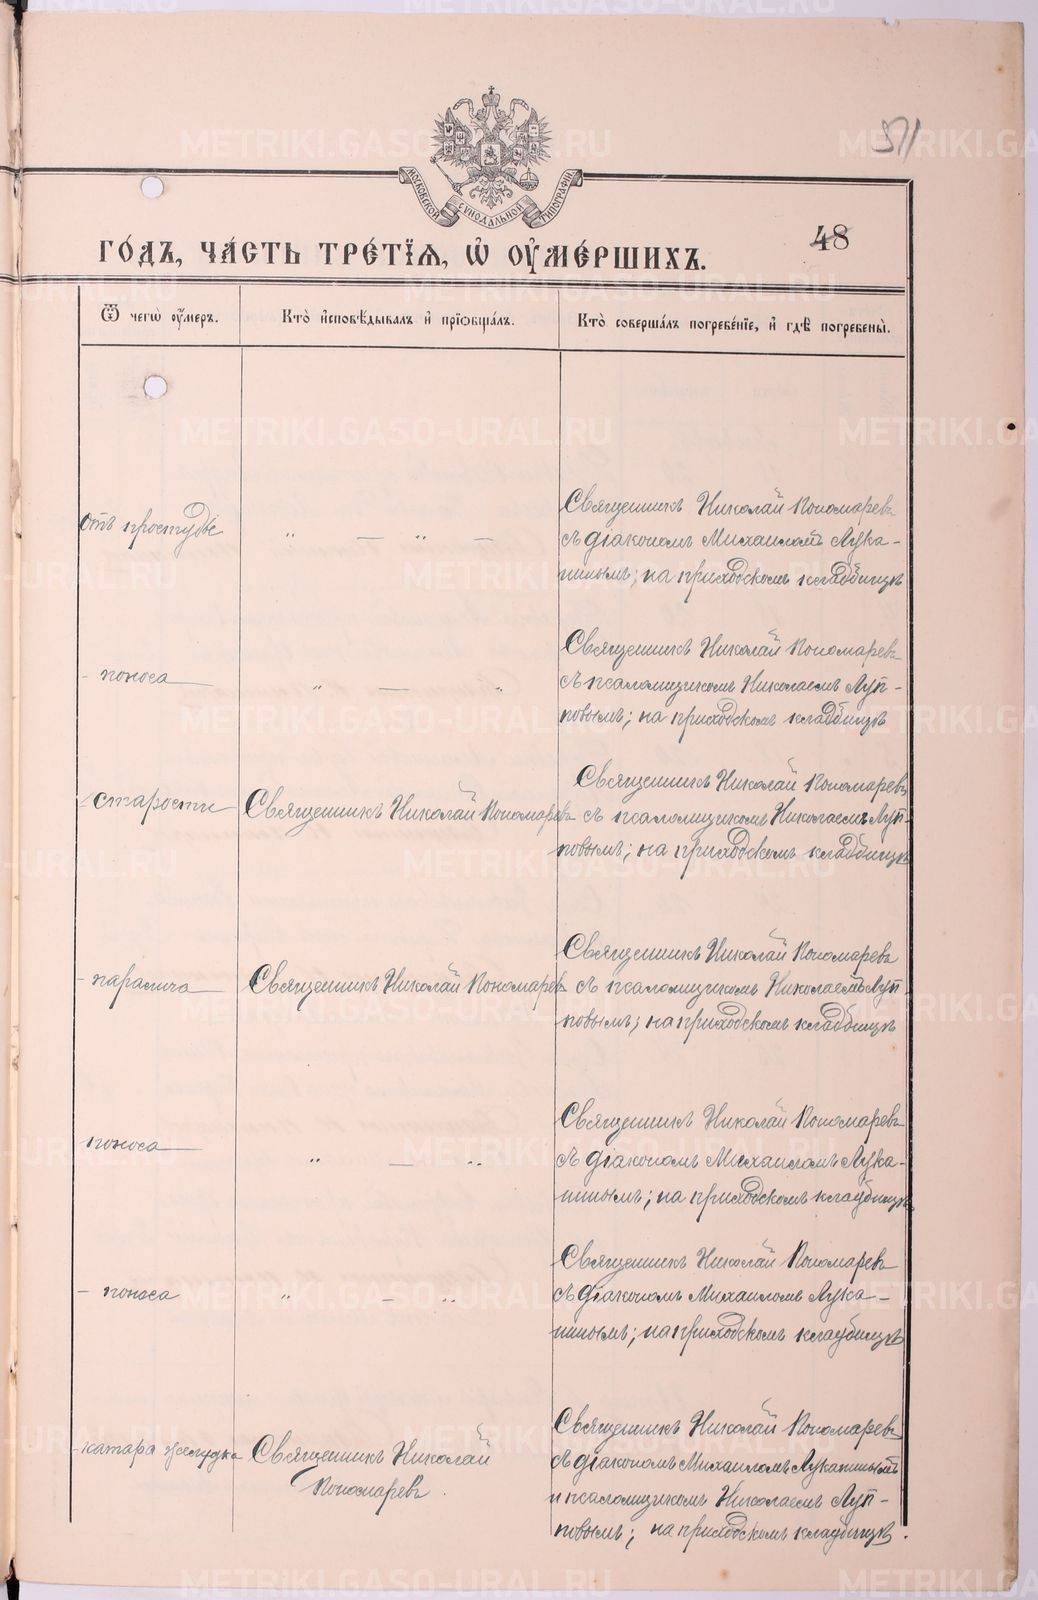 METRIKI.GASO-URAL.RU
МОСКОВСКОЙ СѴНОДАЛЬНОЙ ТИПОГРАФІИ
ГО́ДЪ, ЧА́СТЬ ТРЕ́ТІѦ, Ѡ҆ ОУ҆МЕ́РШИХЪ.
48
Ѿ чегѡ̀ оу҆́меръ.
Кто̀ и҆сповѣ́дывалъ и҆ прїѡбща́лъ.
Кто̀ соверша́лъ погребе́нїе, и҆ гдѣ̀ погребены̀.
отъ простуды
" — " —
Священникъ Николай Пономаревъ
съ діакономъ Михаиломъ Лука-
нинымъ; на приходскомъ кладбищѣ
- поноса —
" — "
Священникъ Николай Пономаревъ
съ псаломщикомъ Николаемъ Луп-
повымъ; на приходскомъ кладбищѣ
- старости —
Священникъ Николай Пономаревъ
Священникъ Николай Пономаревъ
съ псаломщикомъ Николаемъ Луп-
повымъ; на приходскомъ кладбищѣ
- паралича —
Священникъ Николай Пономаревъ
Священникъ Николай Пономаревъ
съ псаломщикомъ Николаемъ Луп-
повымъ; на приходскомъ кладбищѣ
поноса —
" — "
Священникъ Николай Пономаревъ
съ діакономъ Михаиломъ Лука-
нинымъ; на приходскомъ кладбищѣ
- поноса
" — "
Священникъ Николай Пономаревъ
съ діакономъ Михаиломъ Лука-
нинымъ; на приходскомъ кладбищѣ
- катара желудка
Священникъ Николай
Пономаревъ.
Священникъ Николай Пономаревъ
съ діакономъ Михаиломъ Луканинымъ
и псаломщикомъ Николаемъ Луп-
повымъ; на приходскомъ кладбищѣ.